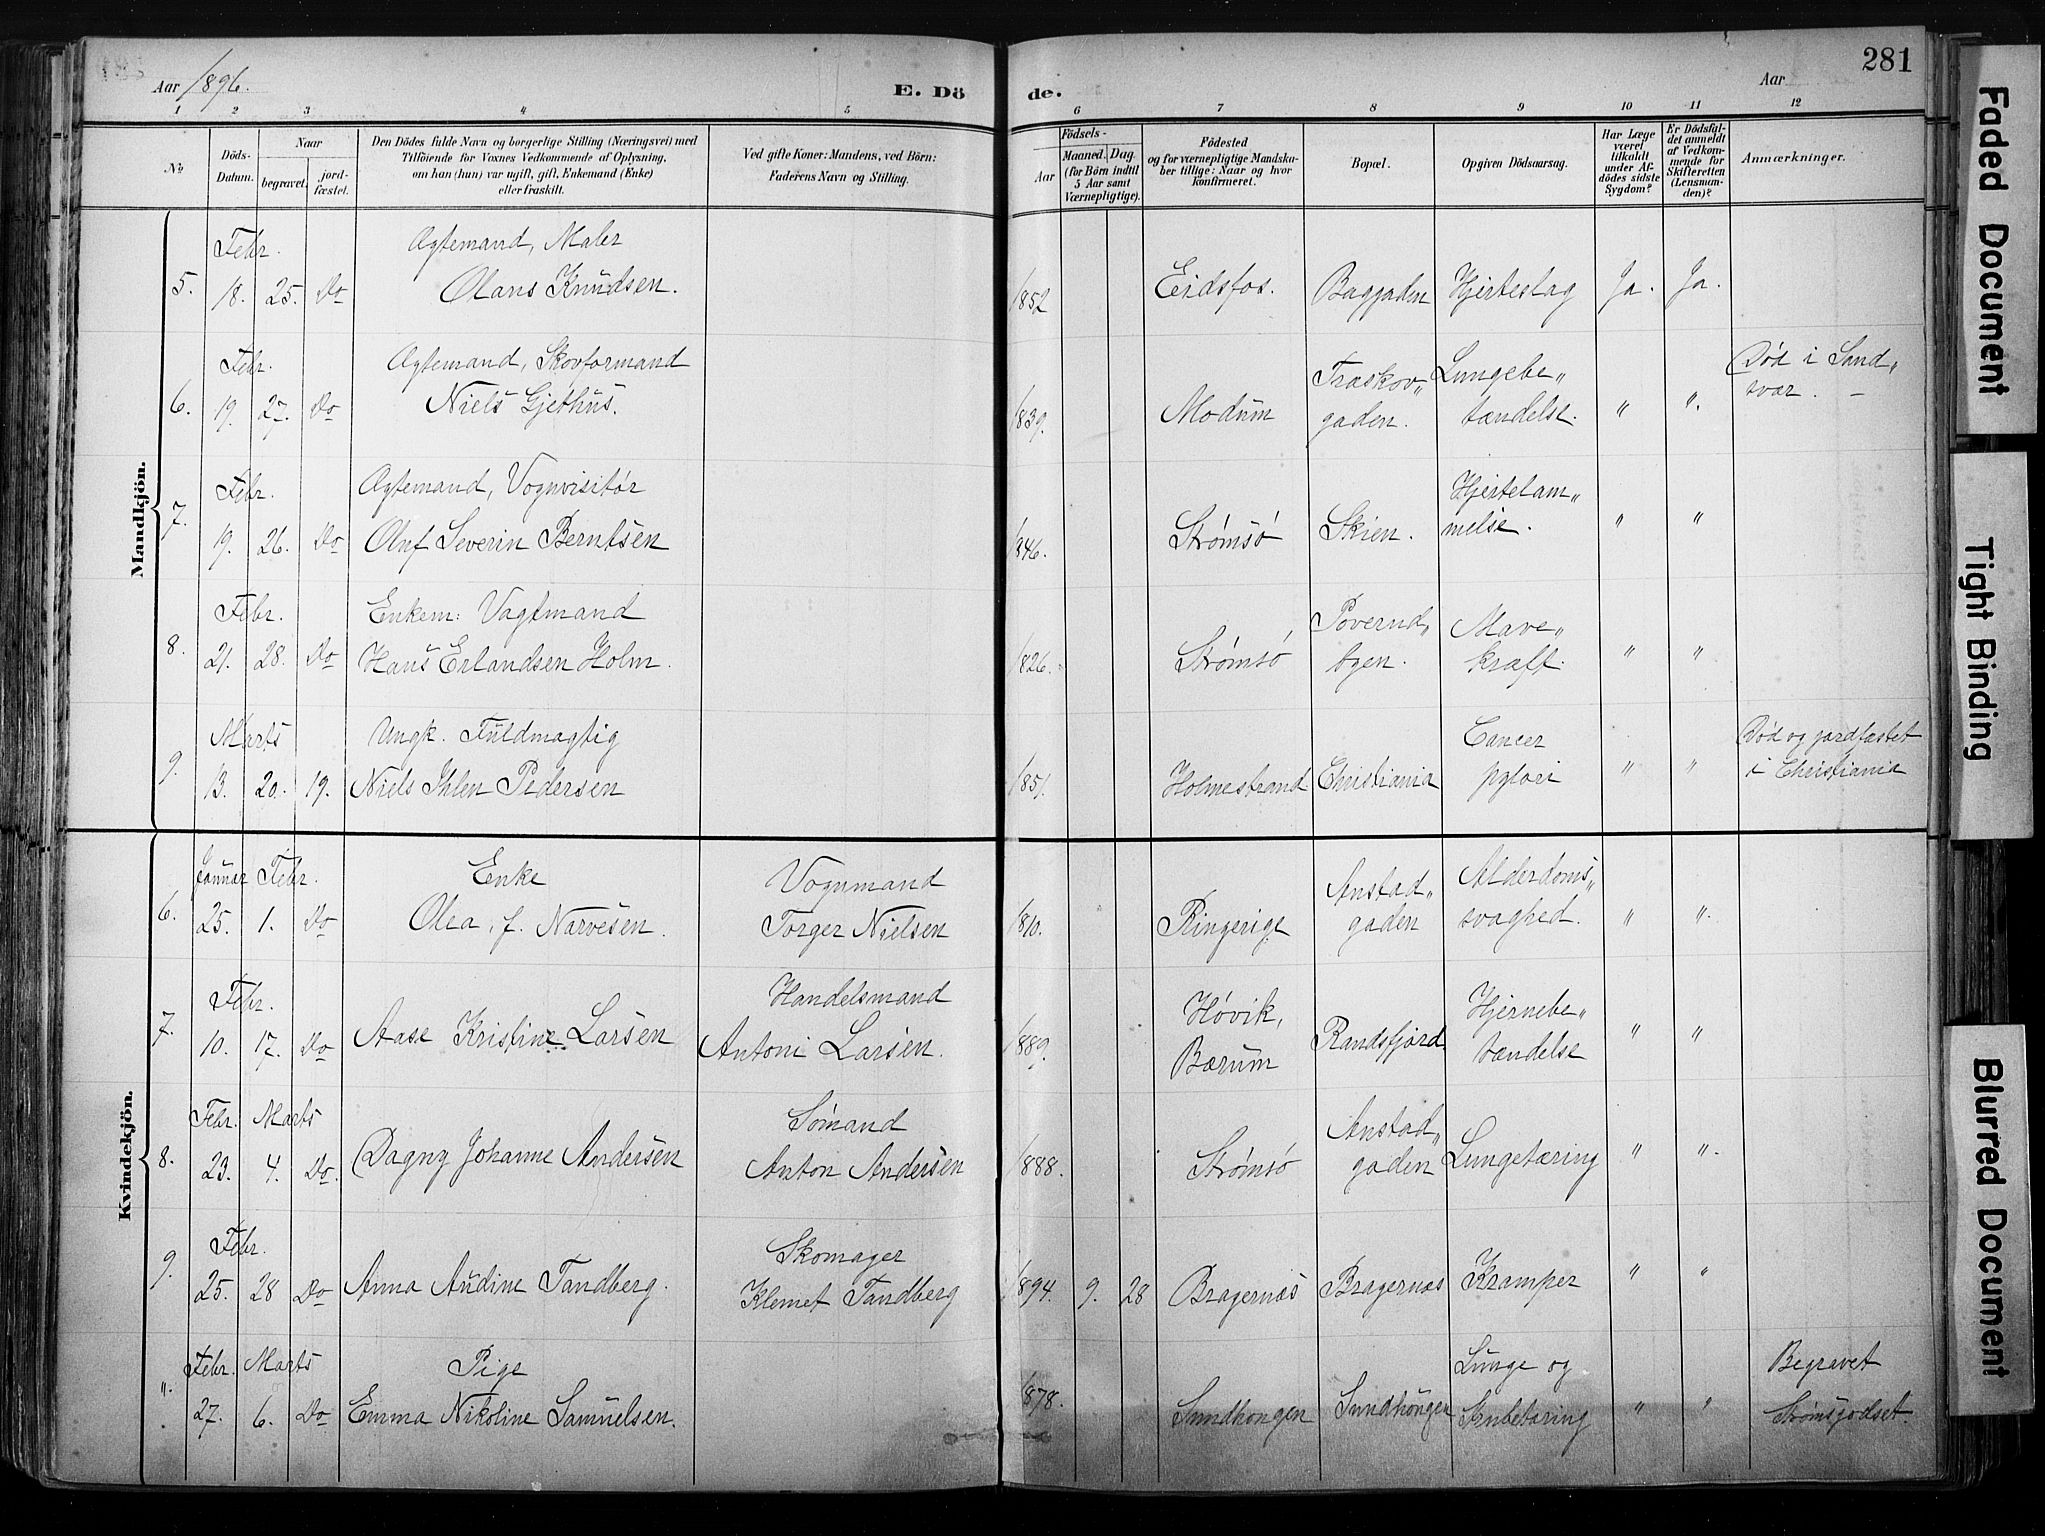 281
Aar 1896.
E. Dö de.
Aar
1 2 3 4 5 6 7 8 9 10 11 12
No
Döds-Datum.
Naar
begravet.
jord-fæstet.
Den Dödes fulde Navn og borgerlige Stilling (Næringsvei) med
Tilföiende for Voxnes Vedkommende af Oplysning,
om han (hun) var ugift, gift, Enkemand (Enke)
eller fraskilt.
Ved gifte Koner: Mandens, ved Börn:
Faderens Navn og Stilling.
Födsels-
Aar
Maaned. Dag.
(for Börn indtil
5 Aar samt
Værnepligtige).
Födested
og for værnepligtige Mandska-
ber tillige: Naar og hvor
konfirmeret.
Bopæl.
Opgiven Dödsaarsag.
Har Læge
været
tilkaldt
under Af-
dödes sidste
Sygdom?
Er Dödsfal-
det anmeldt
af Vedkom-
mende for
Skifteretten
(Lensman-
den)?
Anmærkninger.
Mandkjön.
Febr. Ægtemand, Maler
5. 18. 25. Do Olaus Knudsen. 1852 Eidsfos. Baggaden Hjerteslag Ja. Ja.
Febr. Ægtemand, Skovformand Træskov„ Lungebe„ Død i Sand„
6. 19. 27. Do Niels Gjethus. 1839. Modum gaden. tændelse. " ". svær. –
Febr. Ægtemand, Vognvisitør Hjertelam„
7. 19. 26. Do Oluf Severin Berntsen 1846. Strømsø Skien. melse. " "
Febr. Enkem: Vagtmand Poverud„ Mave„
8. 21. 28. Do Hans Erlandsen Holm. 1826. Strømsø byen. kræft. " "
Marts Ungk. Fuldmægtig Cancer Død og jordfæstet
9. 13. 20. 19. Niels Ihlen Pedersen 1851. Holmestrand Christiania pylori " " i Christiania
Kvindekjön.
Januar Febr. Enke Vognmand Anstad„ Alderdoms„
6. 25. 1. Do Olea, f. Narvesen. Torger Nielsen 1810. Ringerige gaden svaghed. " ".
Febr. Handelsmand Høvik, Hjernebe„
7. 10. 17. Do Aase Kristine Larsen Antoni Larsen. 1889. Bærum Randsfjord. tændelse " "
Febr. Marts Sømand Anstad„
8. 23. 4. Do. Dagny Johanne Andersen Anton Andersen 1888. Strømsø gaden Lungetæring " ".
Febr. Skomager
9. 25. 28 Do Anna Audine Tandberg. Klemet Tandberg 1894. 9. 28 Bragernæs Bragernæs Kramper " "
Febr. Marts Pige Lunge og Begravet
". 27. 6. Do Emma Nikoline Samuelsen. 1878. Sundhougen Sundhougen Strubetæring " " Strømsgodset.
Faded Document
Tight Binding
Blurred Document